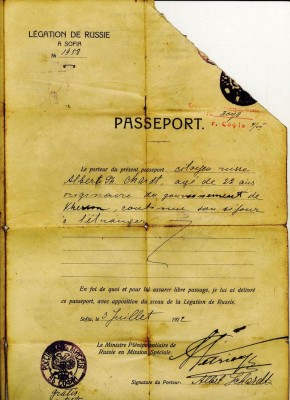 LÉGATION DE RUSSIE
A SOFIA
№ 1952
г. София
PASSEPORT.
Le porteur du présent passeport citoyen russe
Albert Chardt, agé de 22 ans
originaire de gouvernement de
Kherson, continue son séjour
à l'étranger
En foi de quoi et pour lui assurer libre passage, je lui ai délivré
ce passeport, avec apposition du sceau de la Légation de Russie.
Sofia, le 3 Juillet 1922
Le Ministre Plénipotentiaire de
Russie en Mission Spéciale.
Signature du Porteur:
gratis